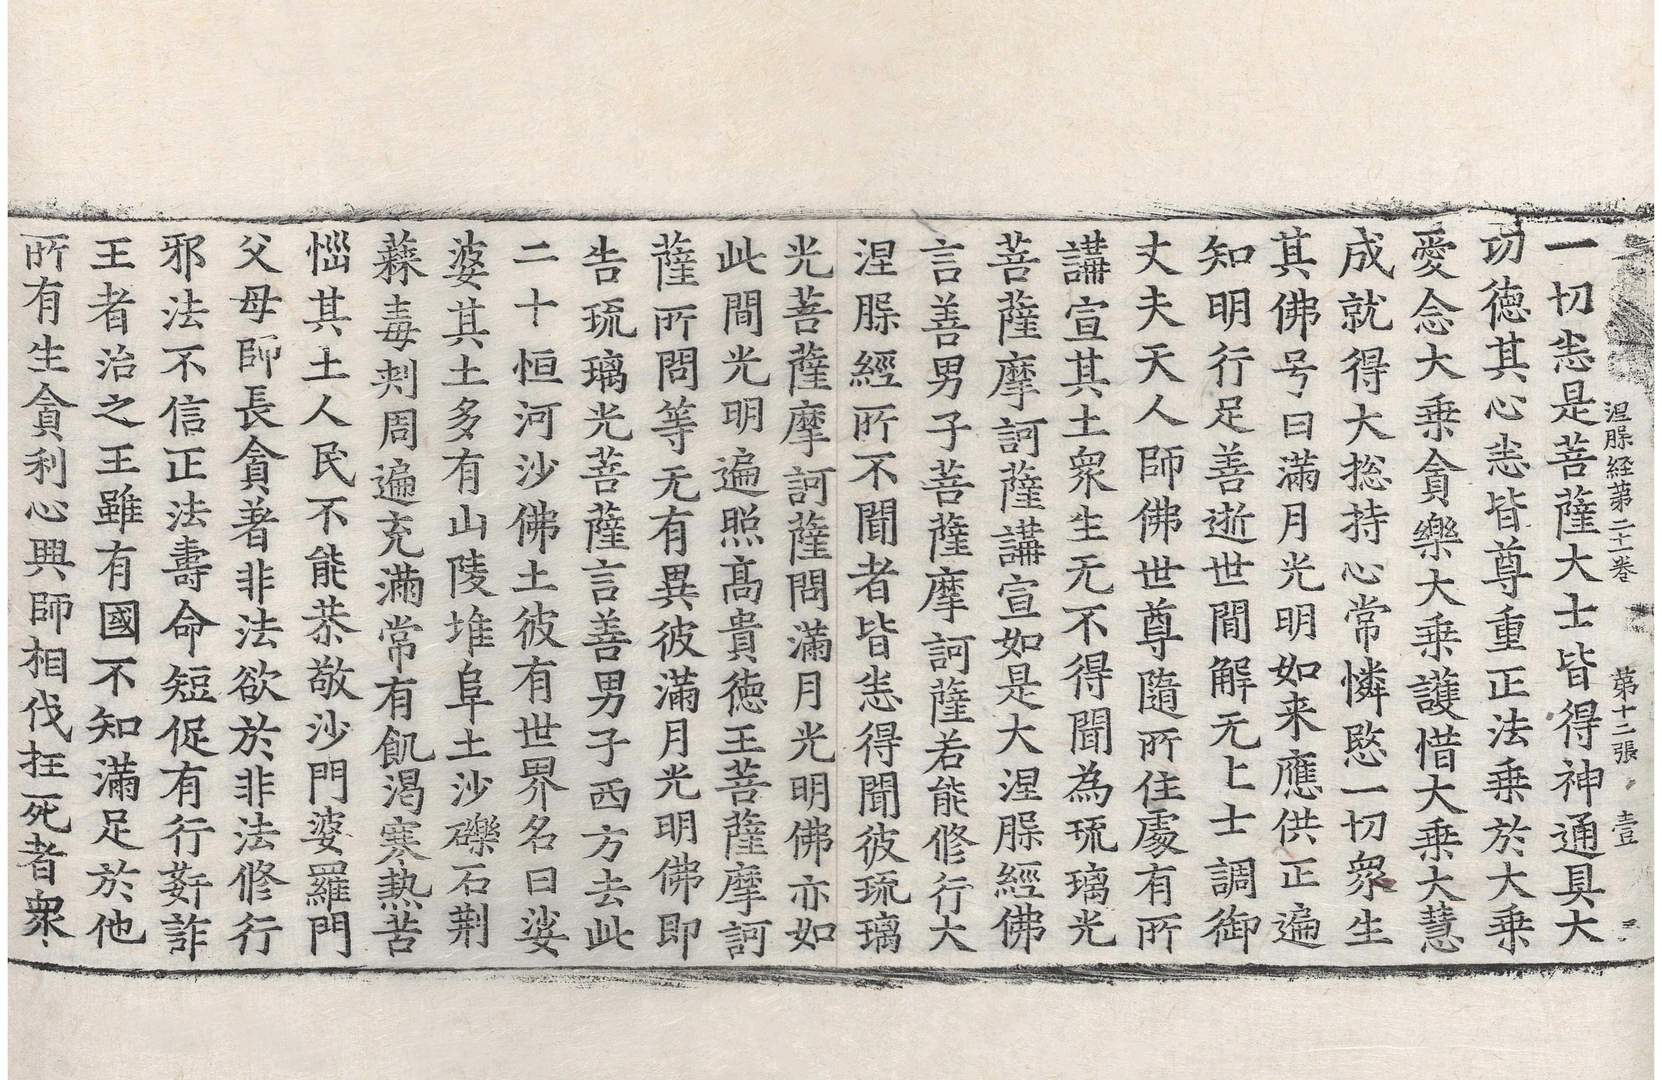 涅槃経第二十一巻 第十二張 壹
一切悉是菩薩大士皆得神通具大
功徳其心悉皆尊重正法乗於大乗
愛念大乗貪樂大乗護惜大乗大慧
成就得大捴持心常憐愍一切衆生
其佛号曰滿月光明如来應供正遍
知明行足善逝世間解无上士調御
丈夫天人師佛世尊隨所住處有所
講宣其土衆生无不得聞為琉璃光
菩薩摩訶薩講宣如是大涅槃經佛
言善男子菩薩摩訶薩若能修行大
涅槃經所不聞者皆悉得聞彼琉璃
光菩薩摩訶薩問滿月光明佛亦如
此間光明遍照髙貴徳王菩薩摩訶
薩所問等无有異彼滿月光明佛即
告琉璃光菩薩言善男子西方去此
二十恒河沙佛土彼有世界名曰娑
婆其土多有山陵堆阜土沙礫石荆
蕀毒刺周遍充滿常有飢渇寒熱苦
惱其土人民不能恭敬沙門婆羅門
父母師長貪著非法欲於非法修行
邪法不信正法壽命短促有行姧詐
王者治之王雖有國不知滿足於他
所有生貪利心興師相伐抂死者衆